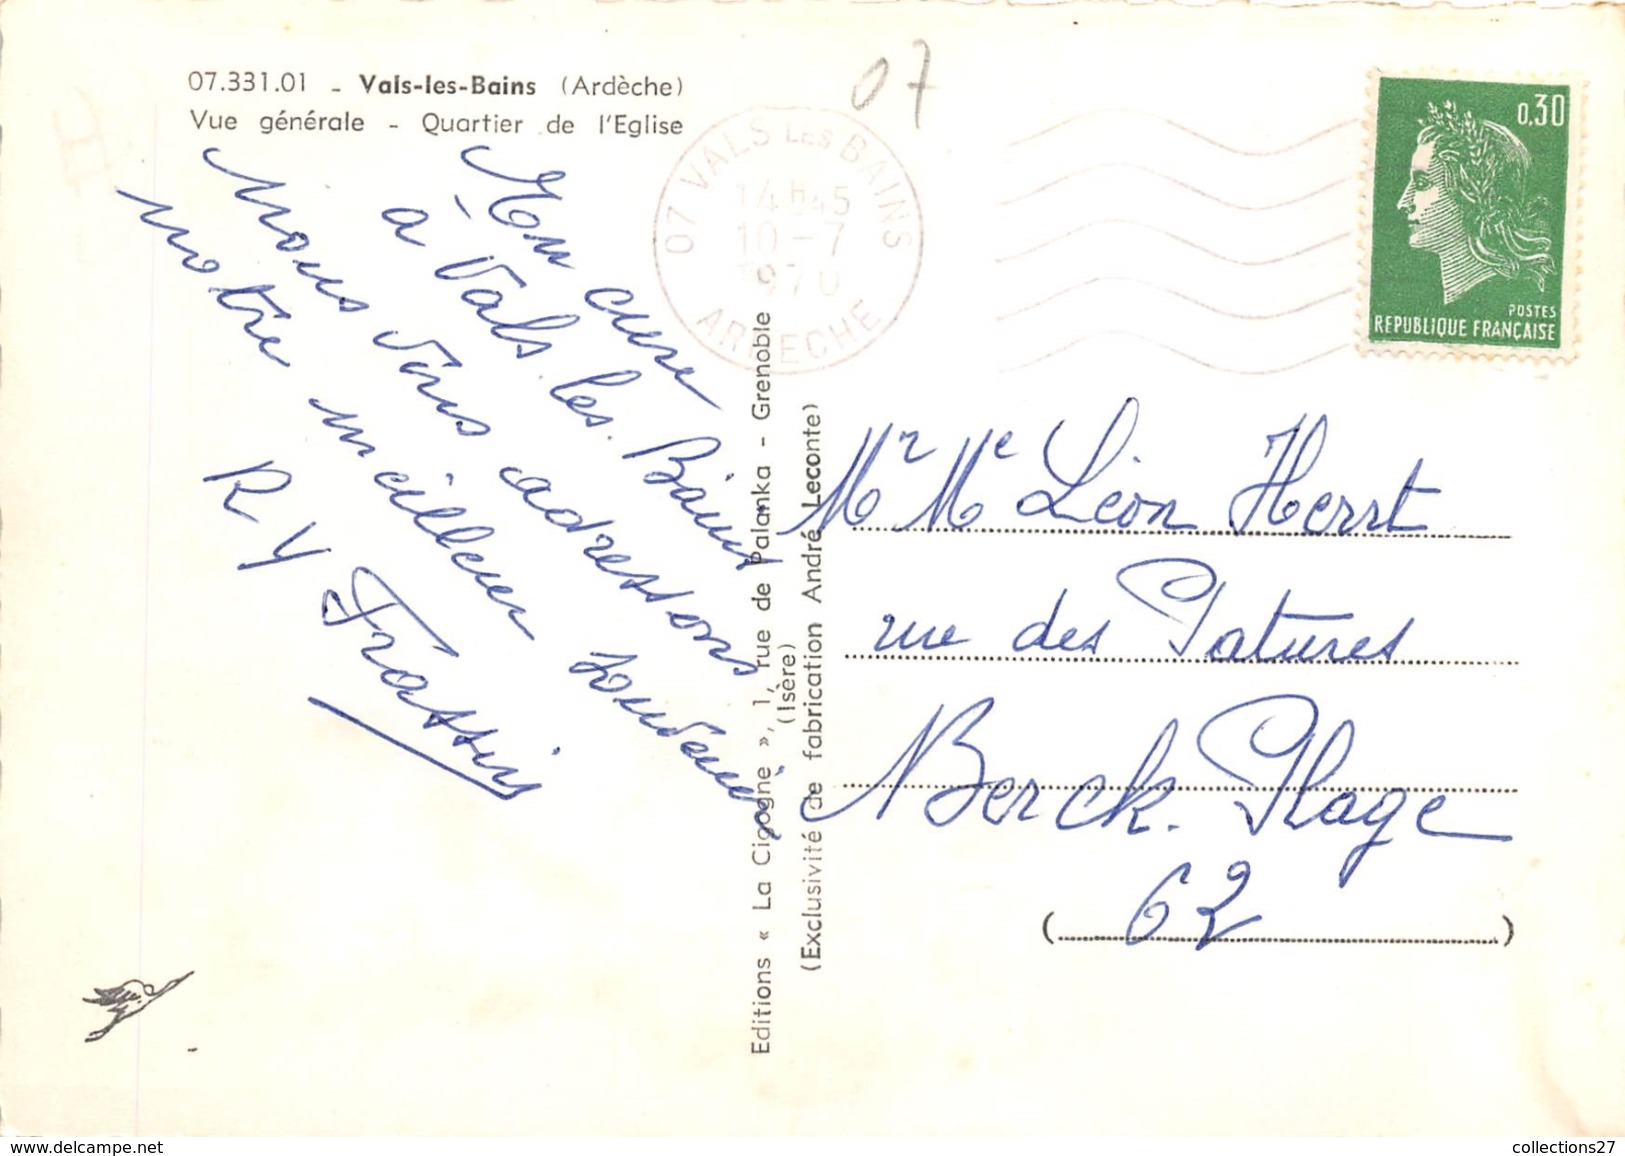 07.331.01 - Vals-les-Bains (Ardèche)
Vue générale - Quartier de l'Eglise
En cure
à Vals.les.Bains
nous vous adressons
notre meilleur souvenir
R Y Frassin
Editions « La Cigogne », 1, rue de Palanka - Grenoble
(Isère)
(Exclusivité de fabrication André Leconte)
07
07 VALS LES BAINS
14H45
10-7
1970
ARDECHE
0,30
POSTES
REPUBLIQUE FRANÇAISE
Mr Me Léon Herrt
rue des Patures
Berck. Plage
(62)
collections27